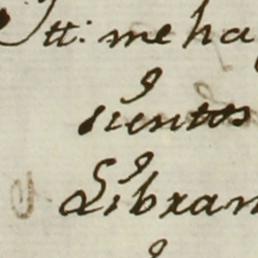 Itt: me ha
sientos
Libran